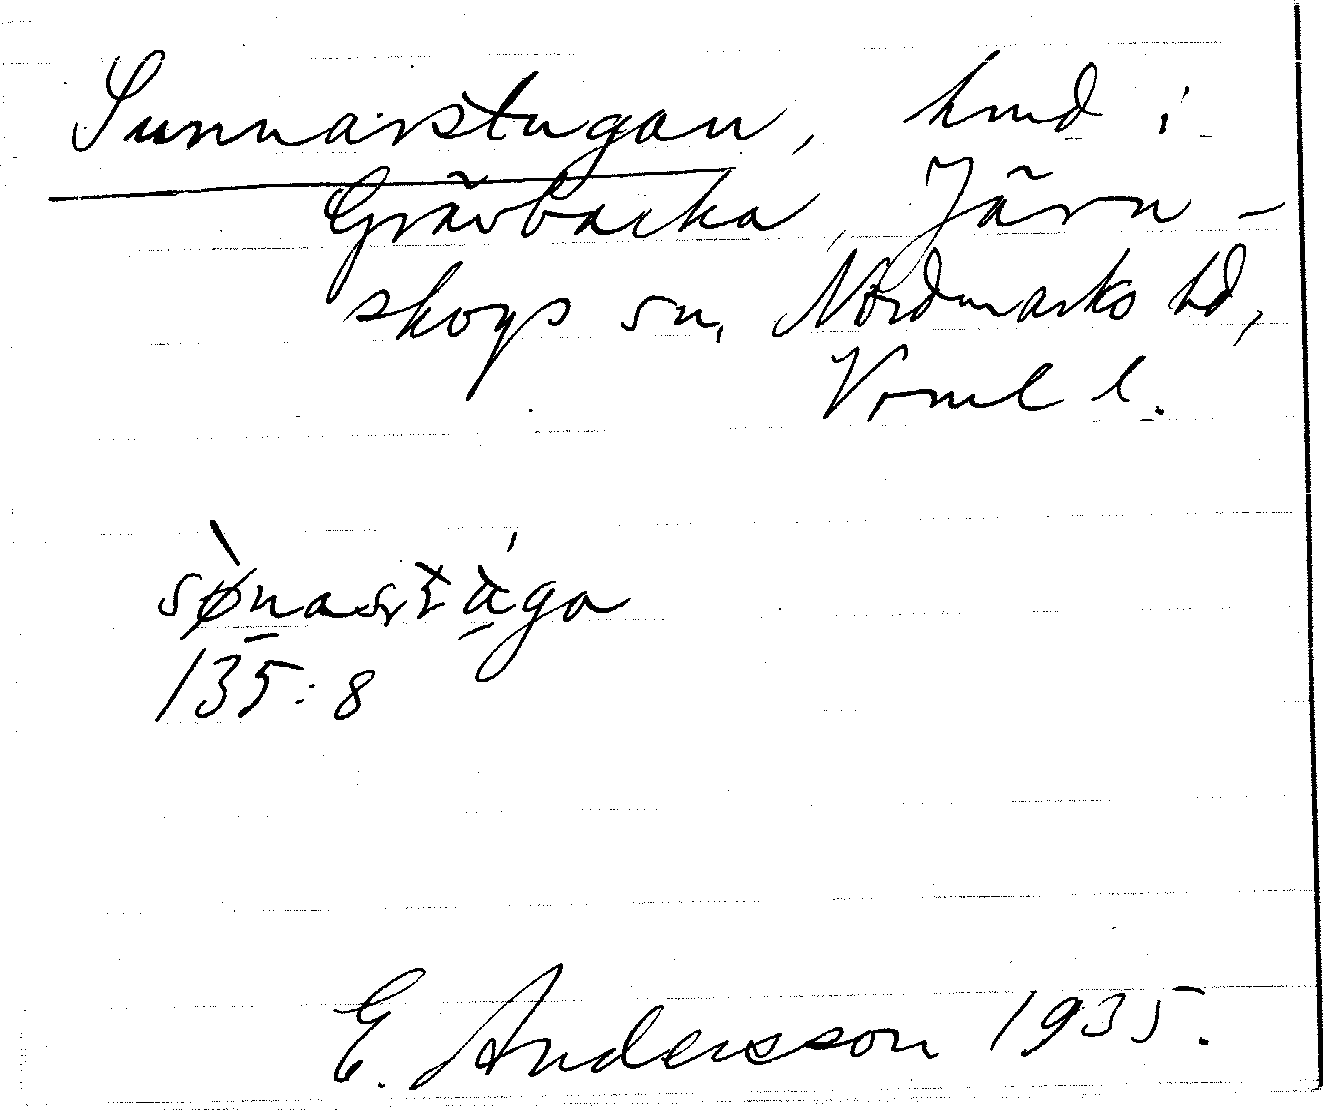 Sunnarstugan, hmd i
Grävbacka, Järn-
skogs sn, Nordmarks hd,
Vrml l.
135:8
E. Andersson 1935.